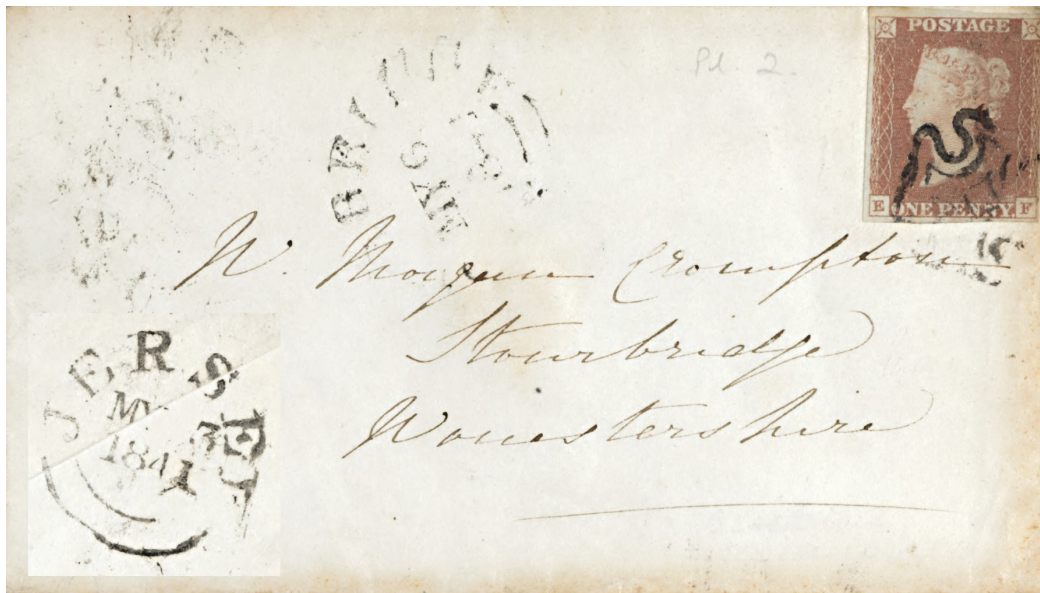 POSTAGE
Pl. 2.
E ONE PENNY F
MY 6
W. Morgan Crompton
Stourbridge
Worcestershire
JERSEY
MY
1841